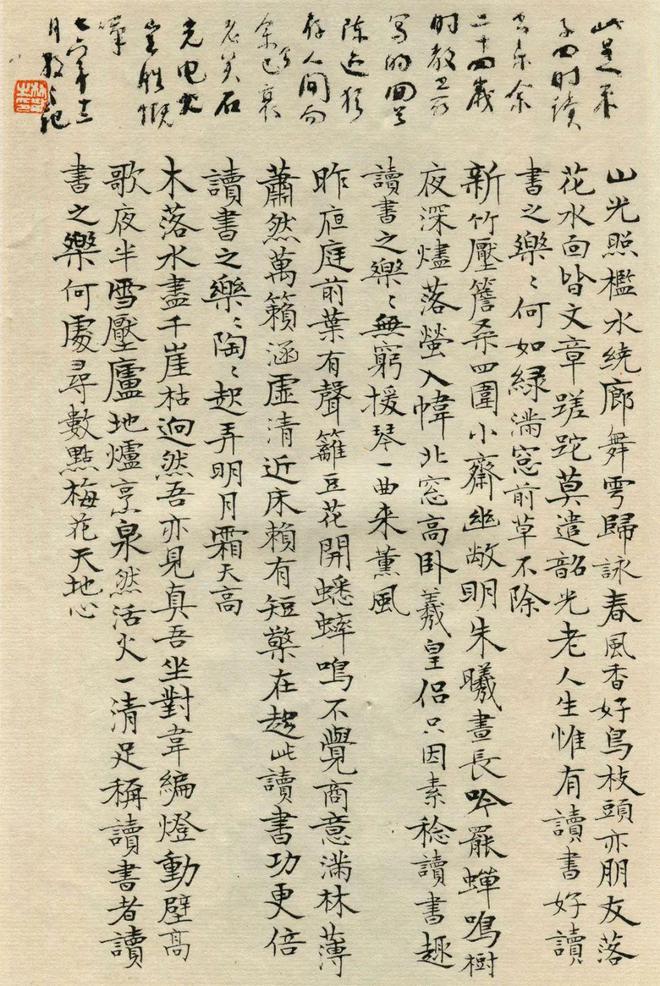 山光照檻水繞廊舞雩歸詠春風香好鳥枝頭亦朋友落
花水面皆文章蹉跎莫遣韶光老人生惟有讀書好讀
書之樂〻何如綠滿窓前草不除
新竹壓簷桑四圍小齋幽敞明朱曦晝長吟罷蟬鳴樹
夜深燼落螢入幃北窓高卧羲皇侣只因素稔讀書趣
讀書之樂〻無窮援琴一曲来薰風
昨夜庭前葉有聲籬豆花開蟋蟀鳴不覺商意滿林薄
蕭然萬籟涵虚清近床賴有短檠在趁此讀書功更倍
讀書之樂〻陶〻起弄明月霜天高
木落水盡千崖枯迥然吾亦見真吾坐對韋編燈動壁高
歌夜半雪壓廬地爐烹泉然活火一清足稱讀書者讀
書之樂何處尋數點梅花天地心
此是朱
子四时读
书乐余
二十四歲
时教
写的回首
陈迹犹
存人间而
余已衰
老矣石
光电火
岂胜慨
七六年十二
月散之記